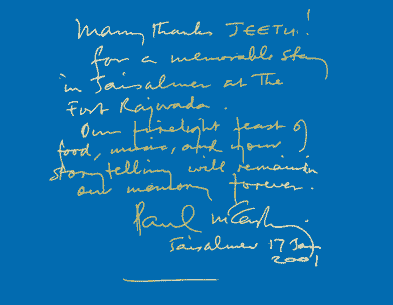 Many thanks JEETU!
for a memorable stay
in Jaisalmer at The
Fort Rajwada.
Our firelight feast of
food, music, and your
storytelling will remain
our memory forever.
Paul McCartney.
Jaisalmer 17 Jan
2001